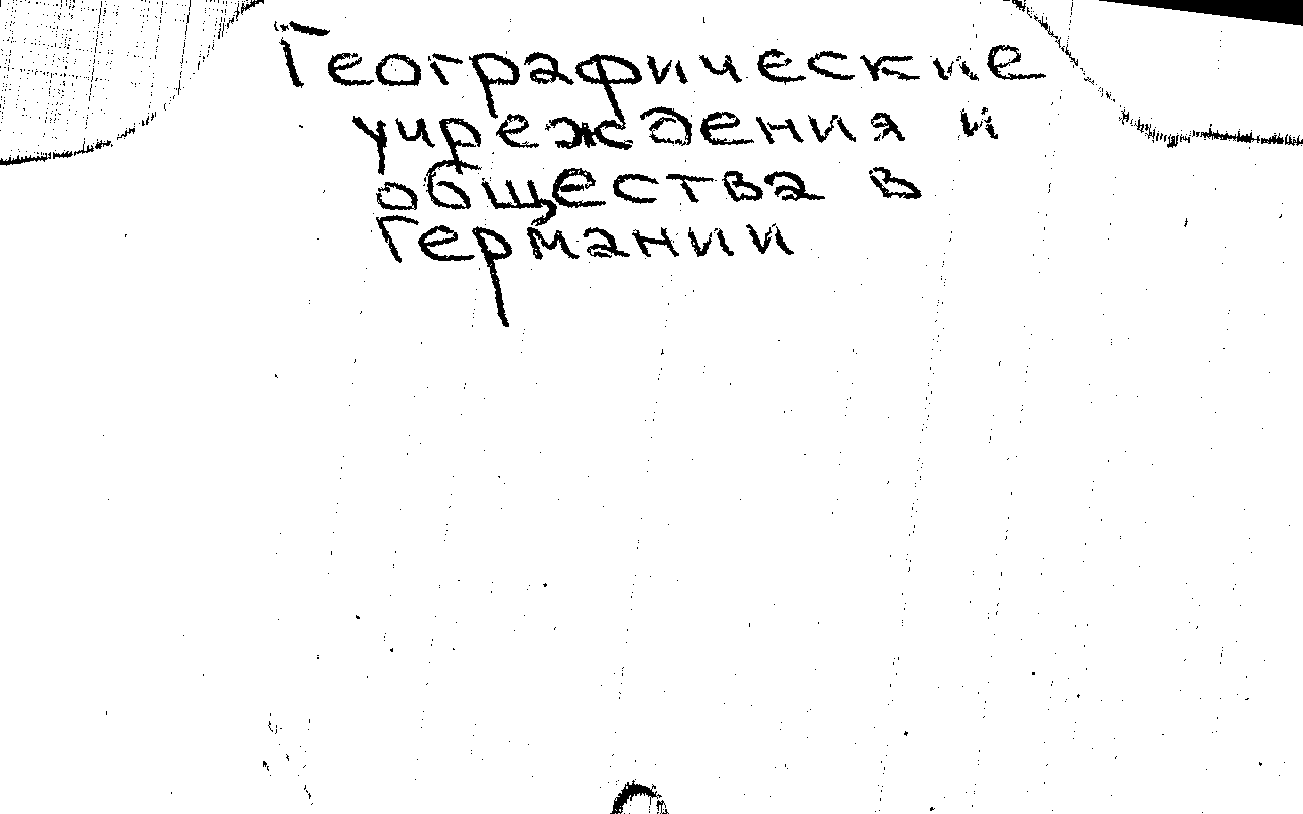 Географические
учреждения и
общества в
Германии